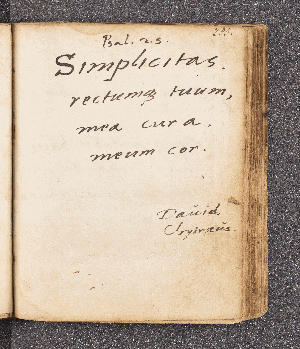 Psal. 25.
Simplicitas.
rectumq tuum,
mea cura.
meum cor.
Dauid.
Chytraeus.